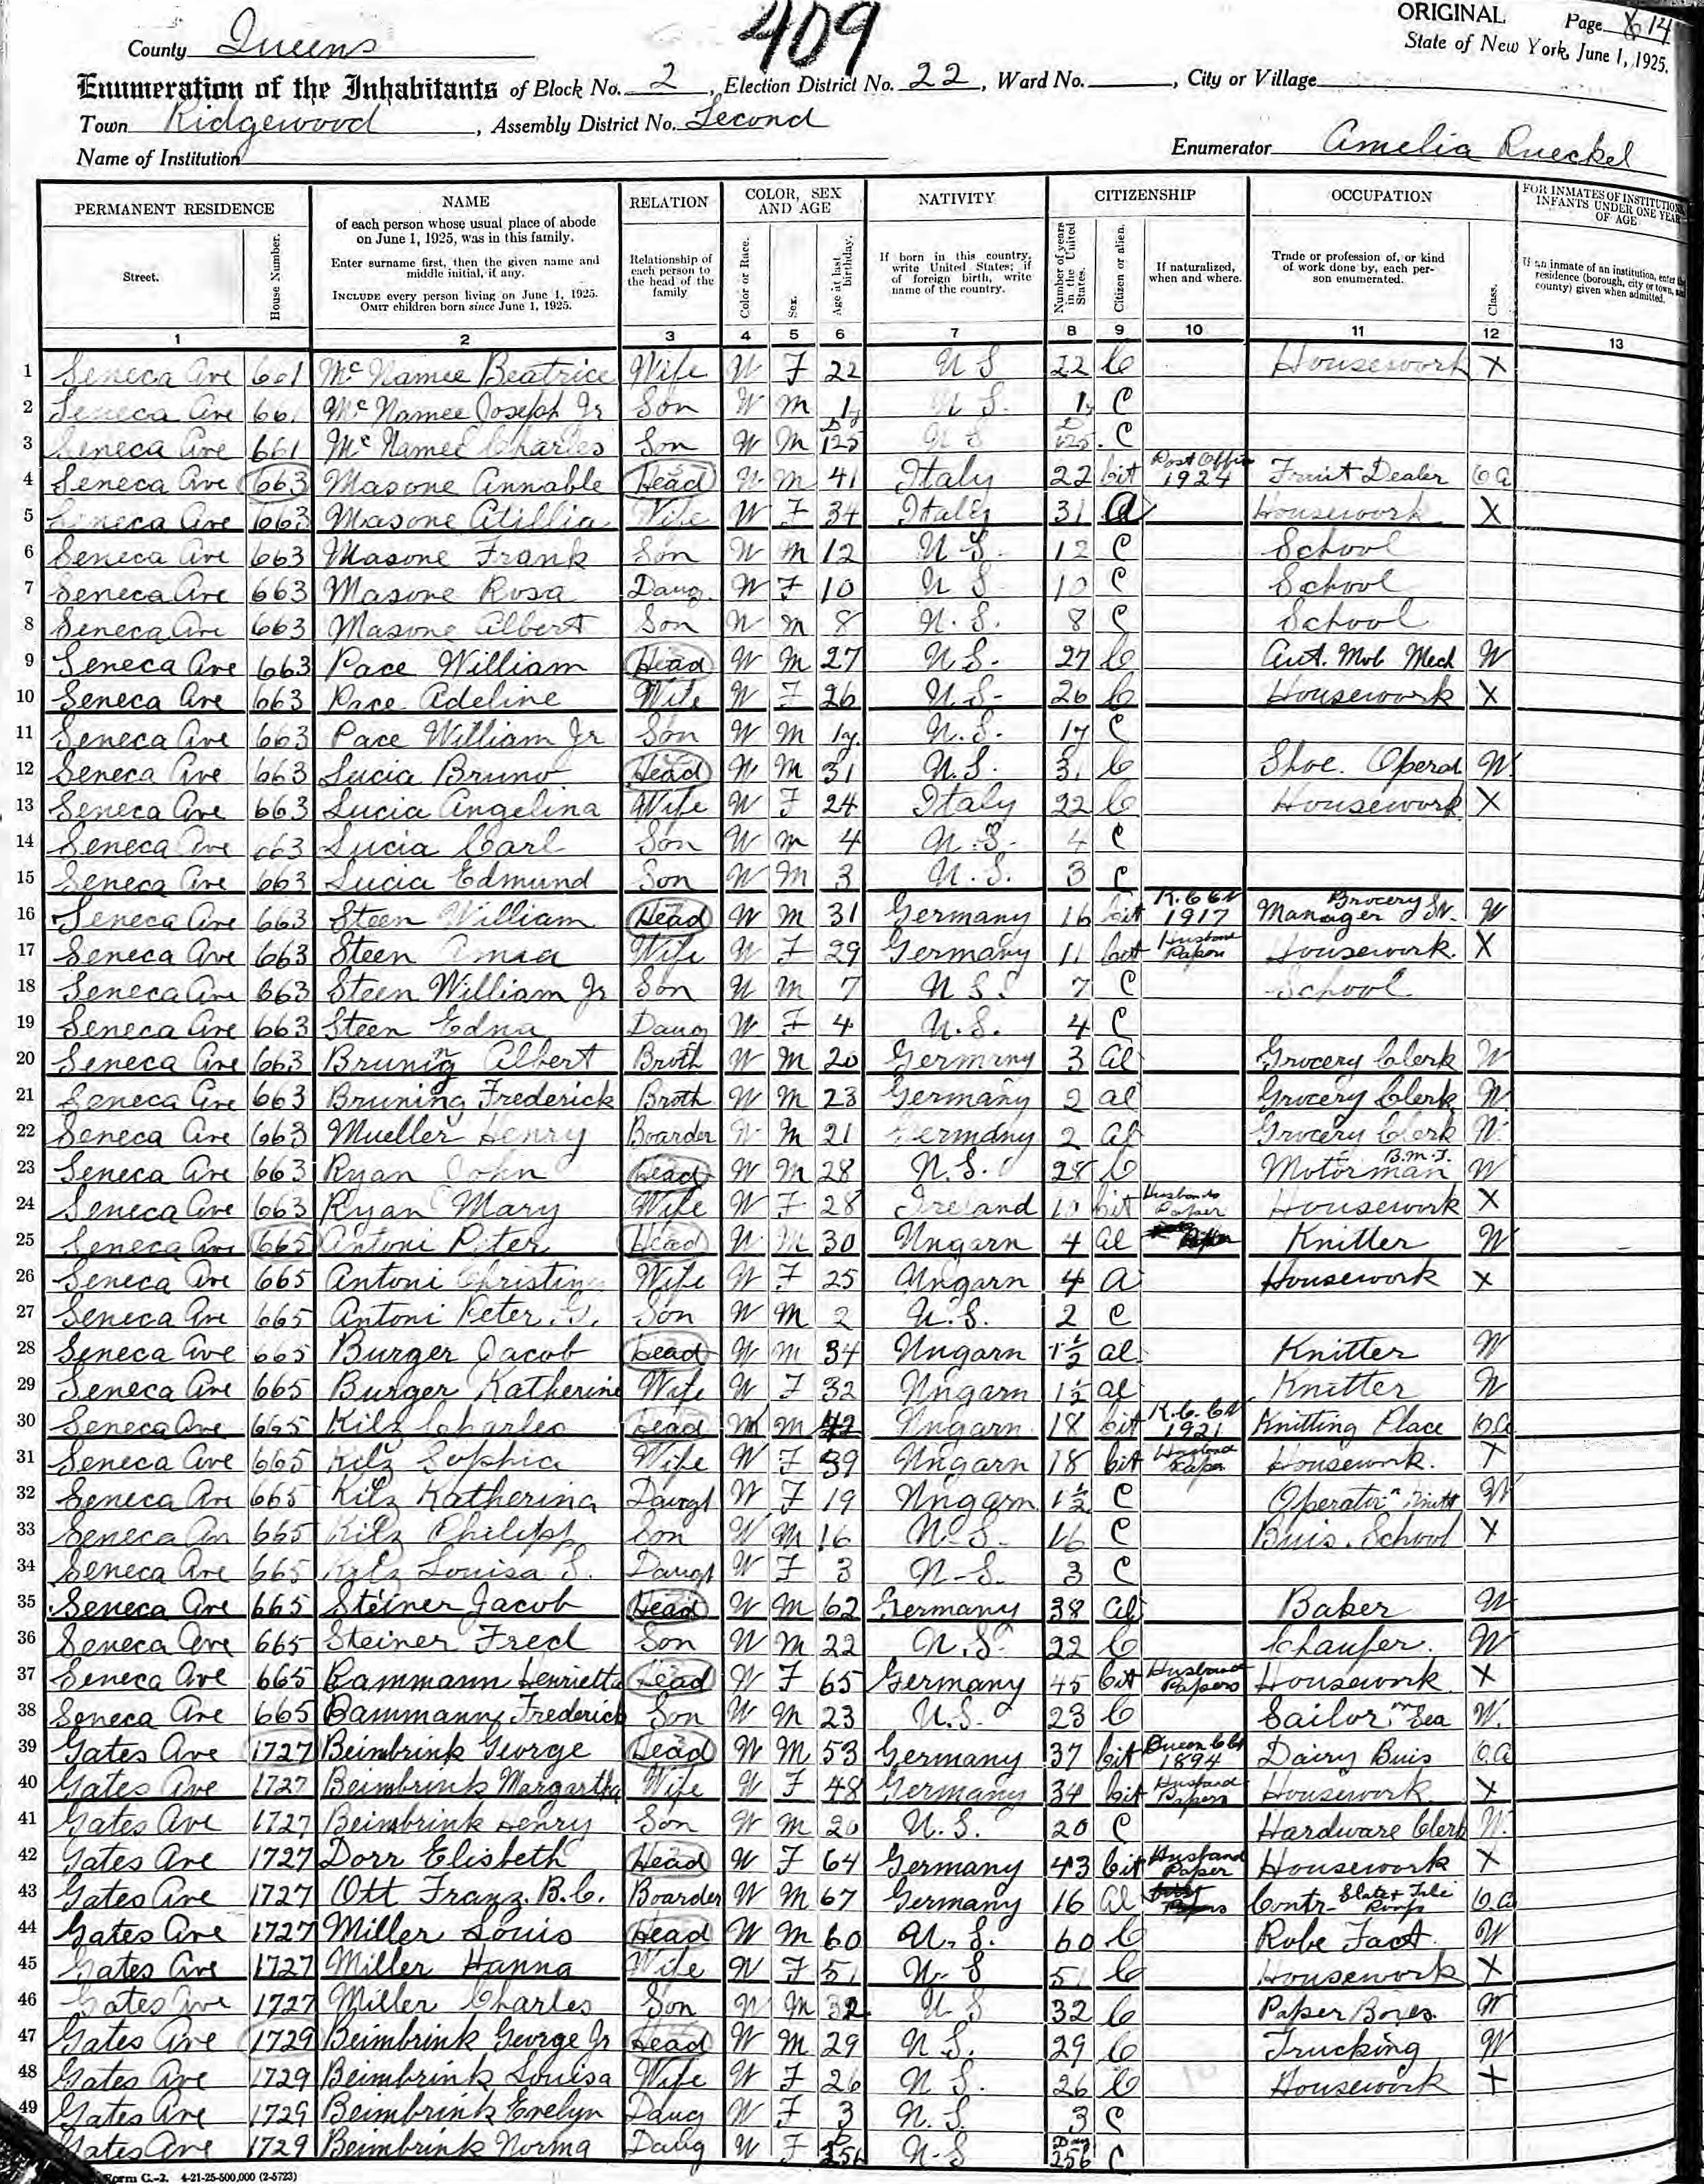 409
ORIGINAL Page 14
County Queens State of New York, June 1, 1925.
Enumeration of the Inhabitants of Block No. 2, Election District No. 22, Ward No. , City or Village
Town Ridgewood, Assembly District No. Second
Name of Institution Enumerator Amelia Rueckel
PERMANENT RESIDENCE NAME RELATION COLOR, SEX AND AGE NATIVITY CITIZENSHIP OCCUPATION FOR INMATES OF INSTITUTIONS INFANTS UNDER ONE YEAR OF AGE
Street. House Number. of each person whose usual place of abode on June 1, 1925, was in this family. Enter surname first, then the given name and middle initial, if any. INCLUDE every person living on June 1, 1925. OMIT children born since June 1, 1925. Relationship of each person to the head of the family Color or Race. Sex. Age at last birthday. If born in this country, write United States; if of foreign birth, write name of the country. Number of years in the United States. Citizen or alien. If naturalized, when and where. Trade or profession of, or kind of work done by, each person enumerated. Class. If an inmate of an institution, enter residence (borough, city or town, and county) given when admitted.
1 2 3 4 5 6 7 8 9 10 11 12 13
1 Seneca Ave 661 Mc Namee Beatrice Wife W F 22 U S 22 C Housework X
2 Seneca Ave 661 Mc Namee Joseph Jr Son W M 1y U S. 1y C
3 Seneca Ave 661 Mc Namee Charles Son W M D 125 U S D 125. C
4 Seneca Ave 663 Masone Annable Head W M 41 Italy 22 Cit Post Office 1924 Fruit Dealer O A
5 Seneca Ave 663 Masone Atillia Wife W F 34 Italy 31 A Housework X
6 Seneca Ave 663 Masone Frank Son W M 12 U S. 12 C School
7 Seneca Ave 663 Masone Rosa Daug. W F 10 U S 10 C School
8 Seneca Ave 663 Masone Albert Son W M 8 U. S. 8 C School
9 Seneca Ave 663 Pace William Head W M 27 U.S. 27 C Aut. Mob Mech W
10 Seneca Ave 663 Pace Adeline Wife W F 26 U.S. 26 C Housework X
11 Seneca Ave 663 Pace William Jr Son W M 1y. U.S. 1y C
12 Seneca Ave 663 Lucia Bruno Head W M 31 U.S. 31 C Shoe. Operat W.
13 Seneca Ave 663 Lucia Angelina Wife W F 24 Italy 22 C Housework X
14 Seneca Ave 663 Lucia Carl Son W M 4 U.S. 4 C
15 Seneca Ave 663 Lucia Edmund Son W M 3 U.S. 3 C
16 Seneca Ave 663 Steen William Head W M 31 Germany 16 Cit 1917 Manager Grocery St. W
17 Seneca Ave 663 Steen Wife W F 29 Germany 11 Cit Husband Papers Housework. X
18 Seneca Ave 663 Steen William Jr Son W M 7 U S. 7 C School
19 Seneca Ave 663 Steen Edna Daug W F 4 U.S. 4 C
20 Seneca Ave 663 Bruning Albert Broth W M 20 Germany 3 Al Grocery Clerk W
21 Seneca Ave 663 Bruning Frederick Broth W M 23 Germany 2 Al Grocery Clerk W.
22 Seneca Ave 663 Mueller Henry Boarder W M 21 Germany 2 Al Grocery Clerk W.
23 Seneca Ave 663 Ryan John Head W M 28 U.S. 28 C Motorman B.M.T. W
24 Seneca Ave 663 Ryan Mary Wife W F 28 Ireland 10 Cit Husbands Paper Housework X
25 Seneca Ave 665 Antoni Peter Head W M 30 Ungarn 4 Al Knitter W
26 Seneca Ave 665 Antoni Christina Wife W F 25 Ungarn 4 A Housework X
27 Seneca Ave 665 Antoni Peter. Son W M 2 U.S. 2 C
28 Seneca Ave 665 Burger Jacob Head W M 34 Ungarn 1½ Al. Knitter W
29 Seneca Ave 665 Burger Katherine Wife W F 32 Ungarn 1½ Al Knitter W
30 Seneca Ave 665 Kilz Charles Head W M 42 Ungarn 18 Cit 1921 Knitting Place O.A
31 Seneca Ave 665 Kilz Sophia Wife W F 39 Ungarn 18 Cit Husband Paper Housework. X
32 Seneca Ave 665 Kilz Katherina Daugt W F 19 Ungarn 1½ C Operator Knitt W
33 Seneca Ave 665 Kilz Philipp Son W M 16 U.S. 16 C Buis. School X
34 Seneca Ave 665 Kilz Louisa S. Daugt W F 3 U-S. 3 C
35 Seneca Ave 665 Steiner Jacob Head W M 62 Germany 38 Al Baker W
36 Seneca Ave 665 Steiner Fred Son W M 22 U.S. 22 C Chaufer. W
37 Seneca Ave 665 Bammann Henrietta Head W F 65 Germany 45 Cit Husband Papers Housework X
38 Seneca Ave 665 Bammann Frederick Son W M 23 U.S. 23 C Sailor on Sea W.
39 Gates Ave 1727 Beimbrink George Head W M 53 Germany 37 Cit 1894 Dairy Buis O.A
40 Gates Ave 1727 Beimbrink Margartha Wife W F 48 Germany 34 Cit Husband Papers Housework X
41 Gates Ave 1727 Beimbrink Henry Son W M 20 U.S. 20 C Hardware Clerk W.
42 Gates Ave 1727 Dorr Elisbeth Head W F 64 Germany 43 Cit Husband Paper Housework X
43 Gates Ave 1727 Ott Franz. B.C. Boarder W M 67 Germany 16 Al Contr- Slate & Tile Roofs O.A
44 Gates Ave 1727 Miller Louis Head W M 60 U.S. 60 C Robe Fact. W
45 Gates Ave 1727 Miller Hanna Wife W F 51 U-S 51 C Housework X
46 Gates Ave 1727 Miller Charles Son W M 32 U S 32 C Paper Boxes. W
47 Gates Ave 1729 Beimbrink George Jr Head W M 29 U S. 29 C Trucking W
48 Gates Ave 1729 Beimbrink Louisa Wife W F 26 U S. 26 C Housework X
49 Gates Ave 1729 Beimbrink Evelyn Daug W F 3 U.S. 3 C
Gates Ave 1729 Beimbrink Norma Daug W F D 256 U-S Day 256 C
Form C.-2. 4-21-25-500,000 (2-5723)